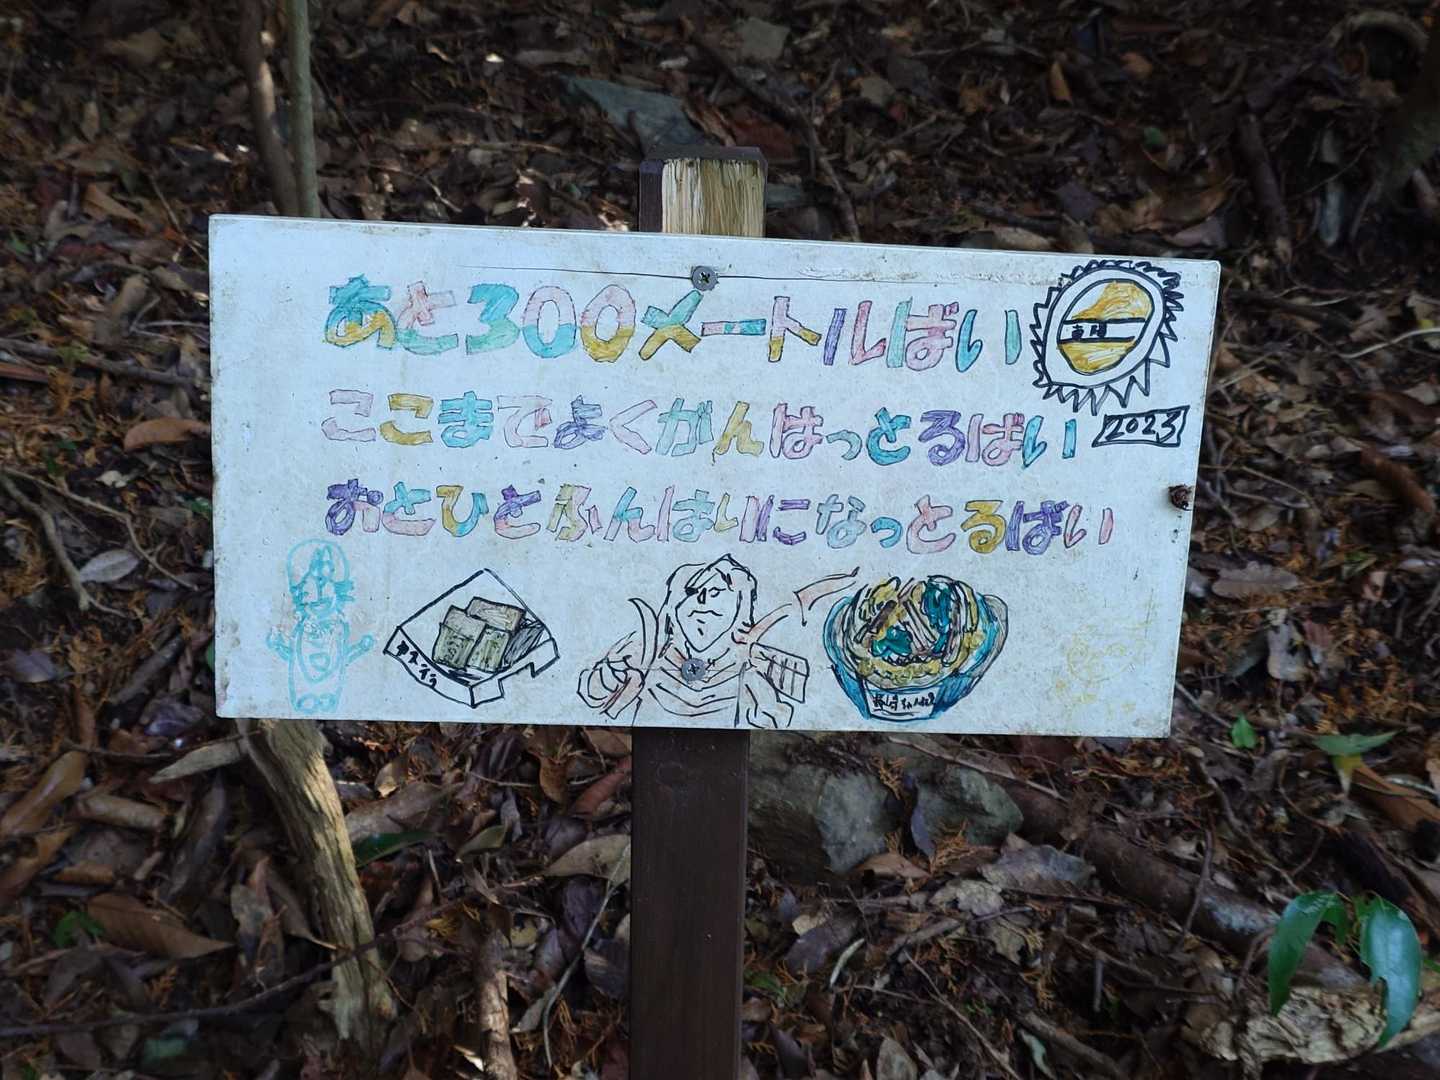 あと300メートルばい
ここまでよくがんばっとるばい
おとひとふんばりになっとるばい
2023
カステラ
長崎ちゃんぽん